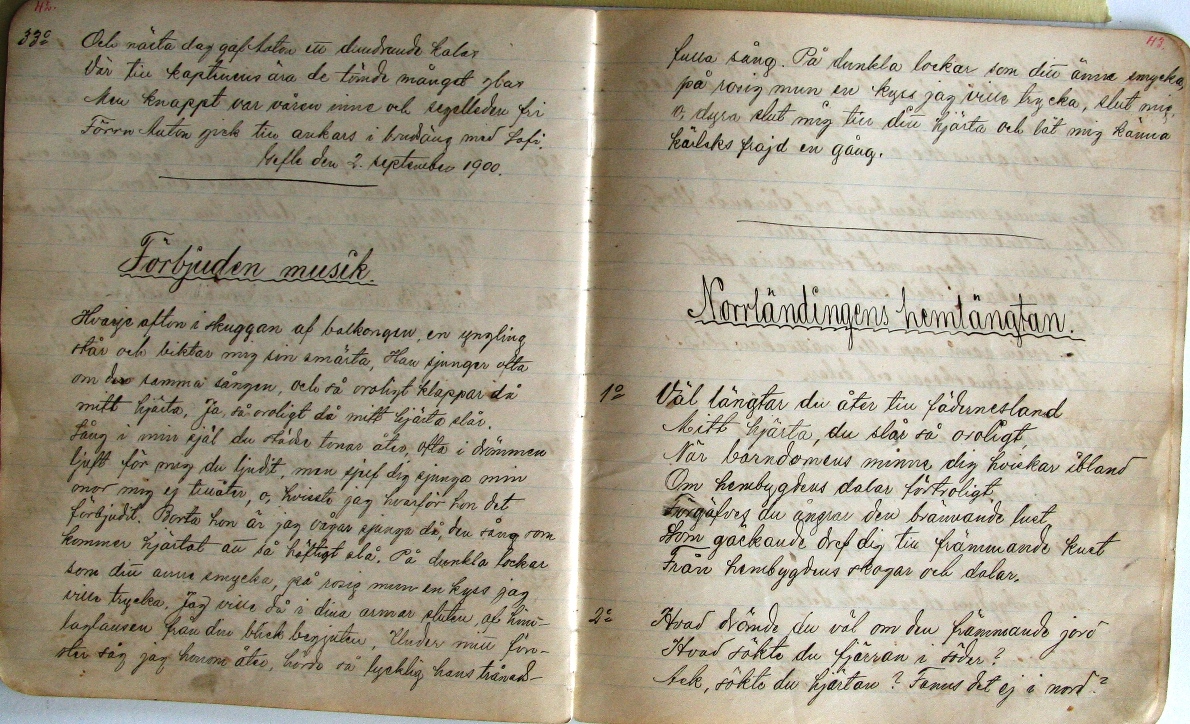 42.
33º Och nästa dag gaf Anton ett dundrande kalas
Där till kaptenens ära de tömde månget glas
Men knappt var våren inne och segelleden fri
Förrn Anton gick till ankars i brudsäng med Sofi.
Gefle den 2. september 1900.
Förbjuden musik.
Hvarje afton i skuggan af balkongen, en yngling
står och biktar mig sin smärta, Han sjunger ofta
om den samma sången, och så oroligt klappar då
mitt hjärta. Ja, så oroligt då mitt hjärta slår.
Sång i min själ du städse tonar åter, ofta i drömmen
ljuft för mig du ljudit, men sjelf dig sjunga min
mor mig ej tillåter, o, hvisste jag hvarför hon det
förbjudit. Borta hon är jag vågar sjunga då, den sång som
kommer hjärtat att så häftigt slå. På dunkla lockar
som ditt änne smycka, på rosig mun en kyss jag
ville trycka. Jag ville då i dina armar sluten, af him-
laglansen från din blick begjuten. Under mitt fön-
ster såg jag honom åter, hörde så lycklig hans trånad-
43.
fulla sång. På dunkla lockar som ditt änne smycka,
på rosig mun en kyss jag ville trycka, slut mig,
o, dyra slut mig till ditt hjärta och låt mig känna
kärleks fröjd en gång.
Norrländingens hemlängtan.
1º Väl längtar du åter till fädernesland
Mitt hjärta, du slår så oroligt,
När barndomens minne dig hviskar ibland
Om hembygdens dalar förtroligt,
Förgäfves du ångrar den brännande lust
Som gäckande dref dig till främmande kust
Från hembygdens skogar och dalar.
2º Hvad drömde du väl om den främmande jord
Hvad sökte du fjärran i söder?
Ack, sökte du hjärtan? Fanns det ej i nord?